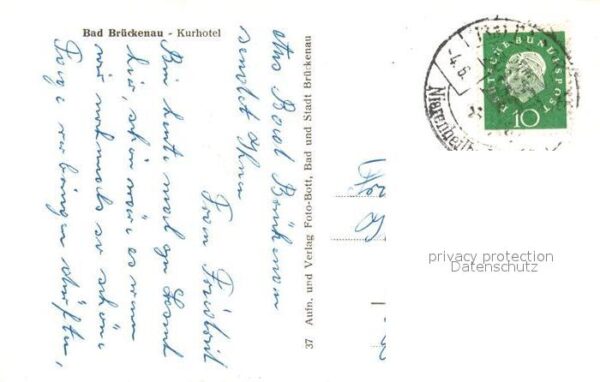 Bad Brückenau - Kurhotel
Aus Bad Brückenau
sendet Ihnen
Bin heute mal zu
hier, schön wäre es wenn
wir nochmals so schöne
Tage verbringen dürften,
37 Aufn. und Verlag Foto-Bott, Bad und Stadt Brückenau
DEUTSCHE BUNDESPOST
10
4.6.
privacy protection
Datenschutz